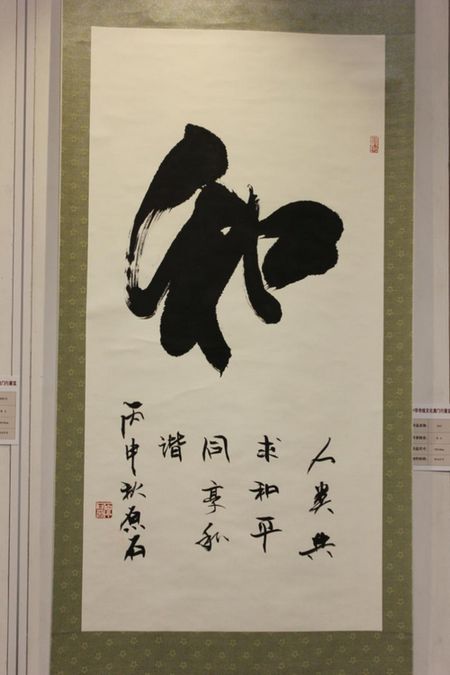 和
人类共
求和平
同享和
谐
丙申秋原石